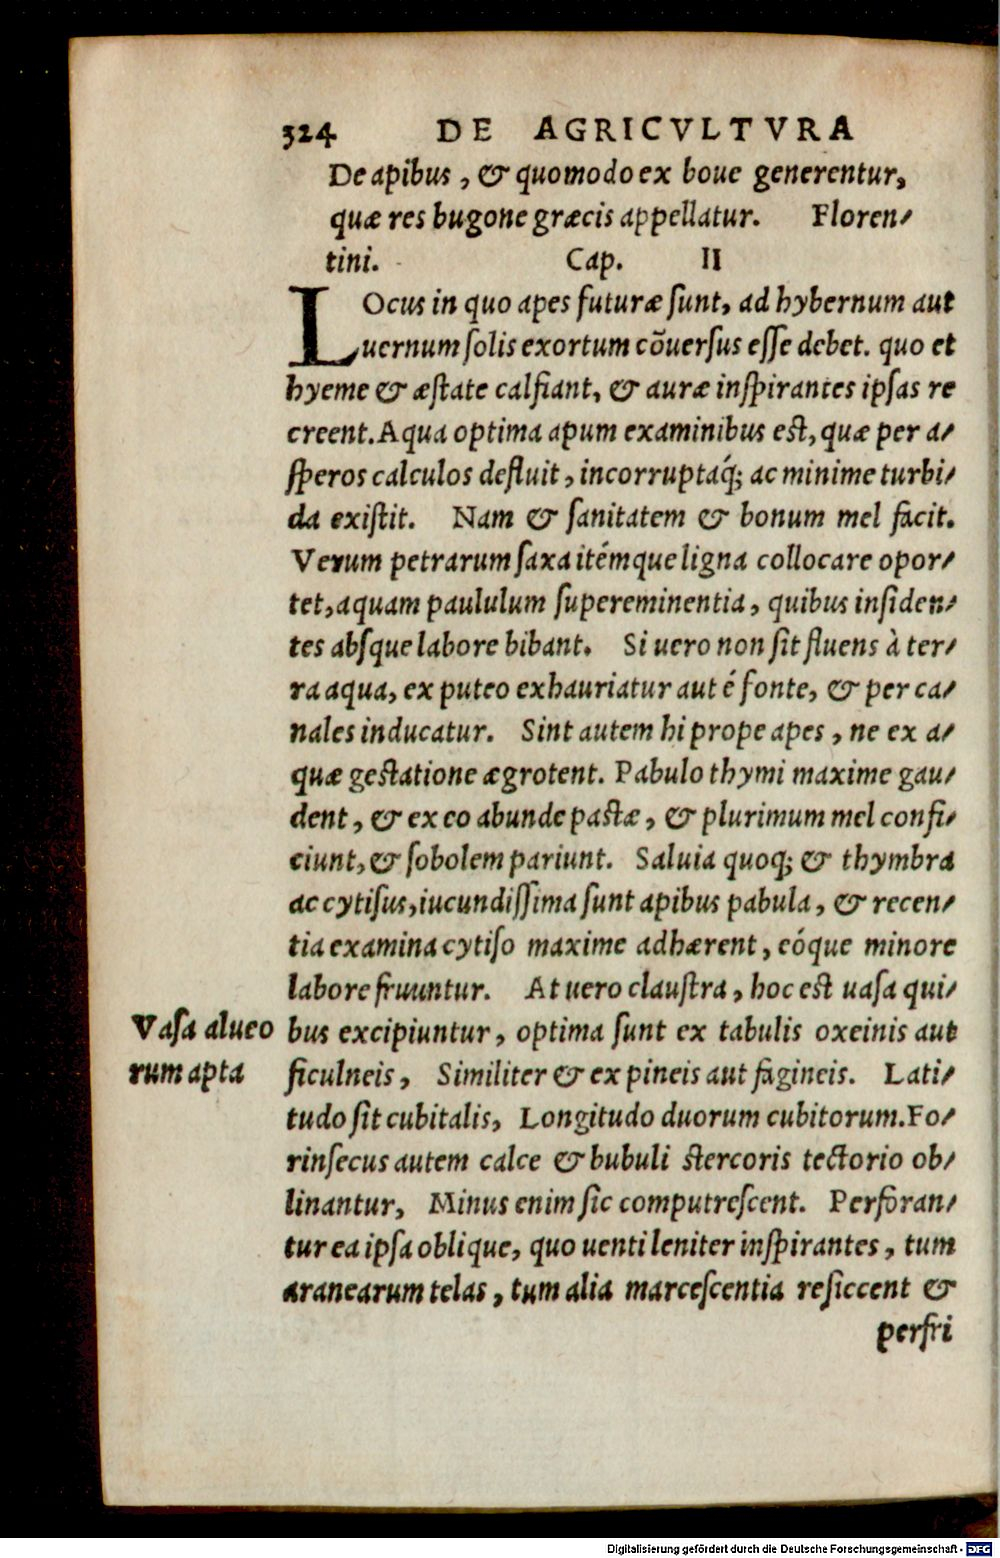 324 DE AGRICVLTVRA
De apibus, & quomodo ex boue generentur,
quæ res bugone græcis appellatur. Floren/
tini. Cap. II
LOcus in quo apes futuræ ſunt, ad hybernum aut
uernum ſolis exortum cõuerſus eſſe debet. quo et
hyeme & æſtate calfiant, & auræ inſpirantes ipſas re
creent. Aqua optima apum examinibus est, quæ per a/
ſperos calculos defluit, incorruptaq́; ac minime turbi/
da exiſtit. Nam & ſanitatem & bonum mel facit.
Verum petrarum ſaxa itémque ligna collocare opor/
tet, aquam paululum ſupereminentia, quibus inſiden/
tes abſque labore bibant. Si uero non ſit fluens à ter/
ra aqua, ex puteo exhauriatur aut é fonte, & per ca/
nales inducatur. Sint autem hi prope apes, ne ex a/
quæ gestatione ægrotent. Pabulo thymi maxime gau/
dent, & ex eo abunde pastæ, & plurimum mel confi/
ciunt, & ſobolem pariunt. Saluia quoq; & thymbra
ac cytiſus, iucundiſſima ſunt apibus pabula, & recen/
tia examina cytiſo maxime adhærent, eóque minore
labore fruuntur. At uero clauſtra, hoc est uaſa qui/
Vaſa alueo bus excipiuntur, optima ſunt ex tabulis oxeinis aut
rum apta ficulneis, Similiter & ex pineis aut fagineis. Lati/
tudo ſit cubitalis, Longitudo duorum cubitorum. Fo/
rinſecus autem calce & bubuli stercoris tectorio ob/
linantur, Minus enim ſic computreſcent. Perforan/
tur ea ipſa oblique, quo uenti leniter inſpirantes, tum
aranearum telas, tum alia marceſcentia reſiccent &
perfri
Digitalisierung gefördert durch die Deutsche Forschungsgemeinschaft - DFG